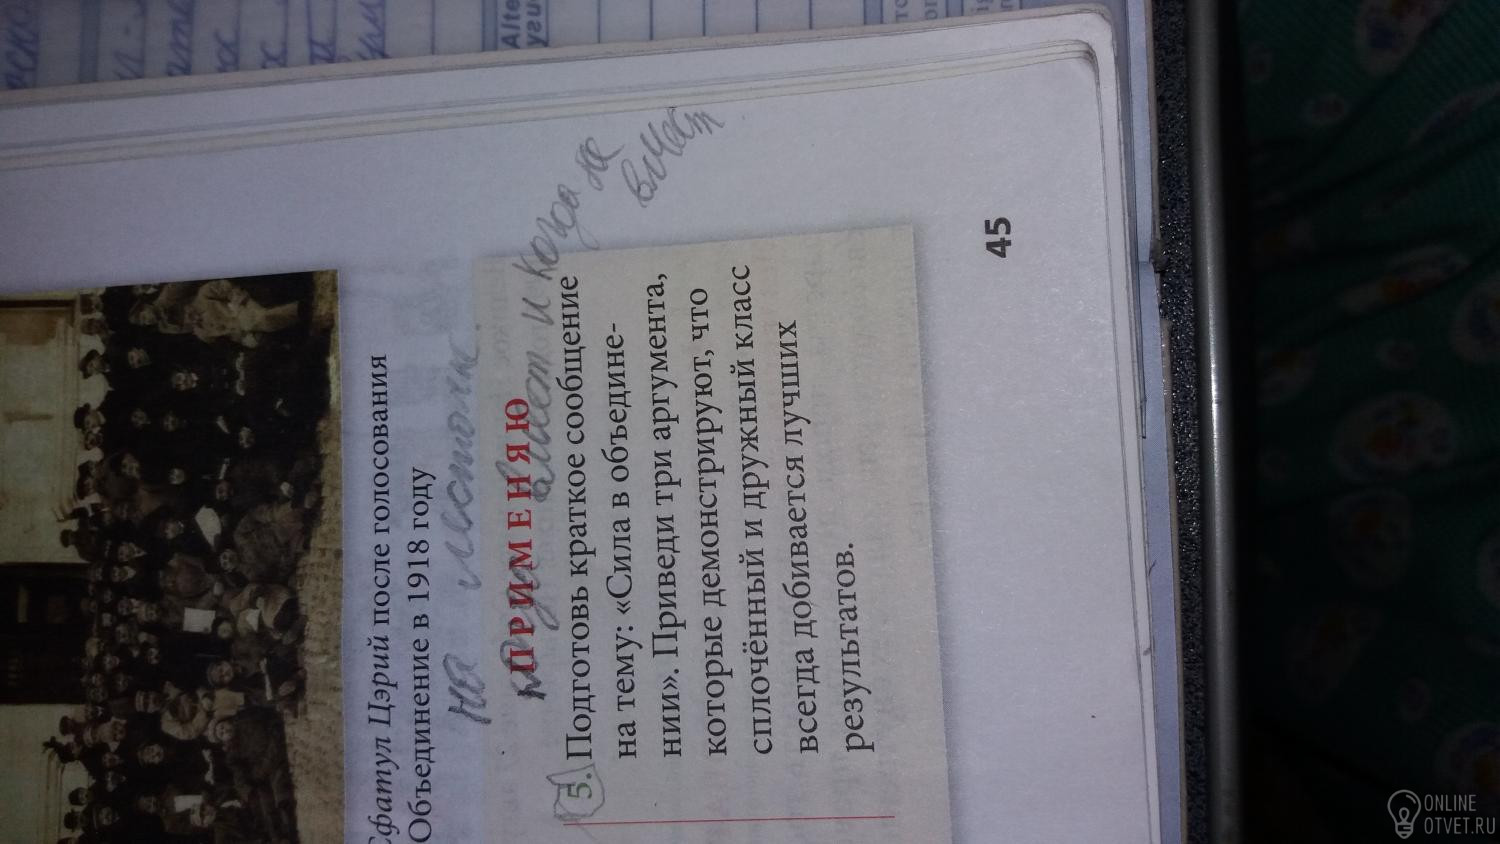 Сфатул Цэрий после голосования
Объединение в 1918 году
на листоч
когда вмест и когда не
вмест
ПРИМЕНЯЮ
5. Подготовь краткое сообщение
на тему: «Сила в объедине-
нии». Приведи три аргумента,
которые демонстрируют, что
сплочённый и дружный класс
всегда добивается лучших
результатов.
45
ONLINE
OTVET.RU